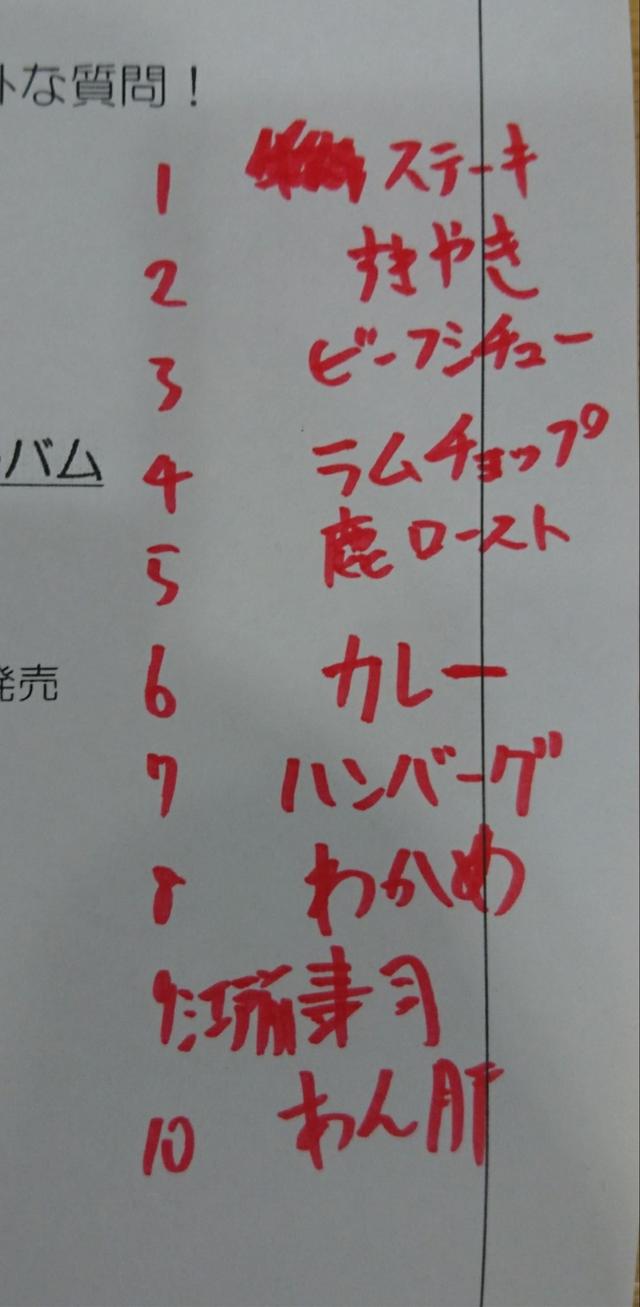 な質問！
1 ステーキ
2 すきやき
3 ビーフシチュー
4 ラムチョップ
バム
5 鹿ロースト
6 カレー
発売
7 ハンバーグ
8 わかめ
9 江戸前寿司
10 あん肝